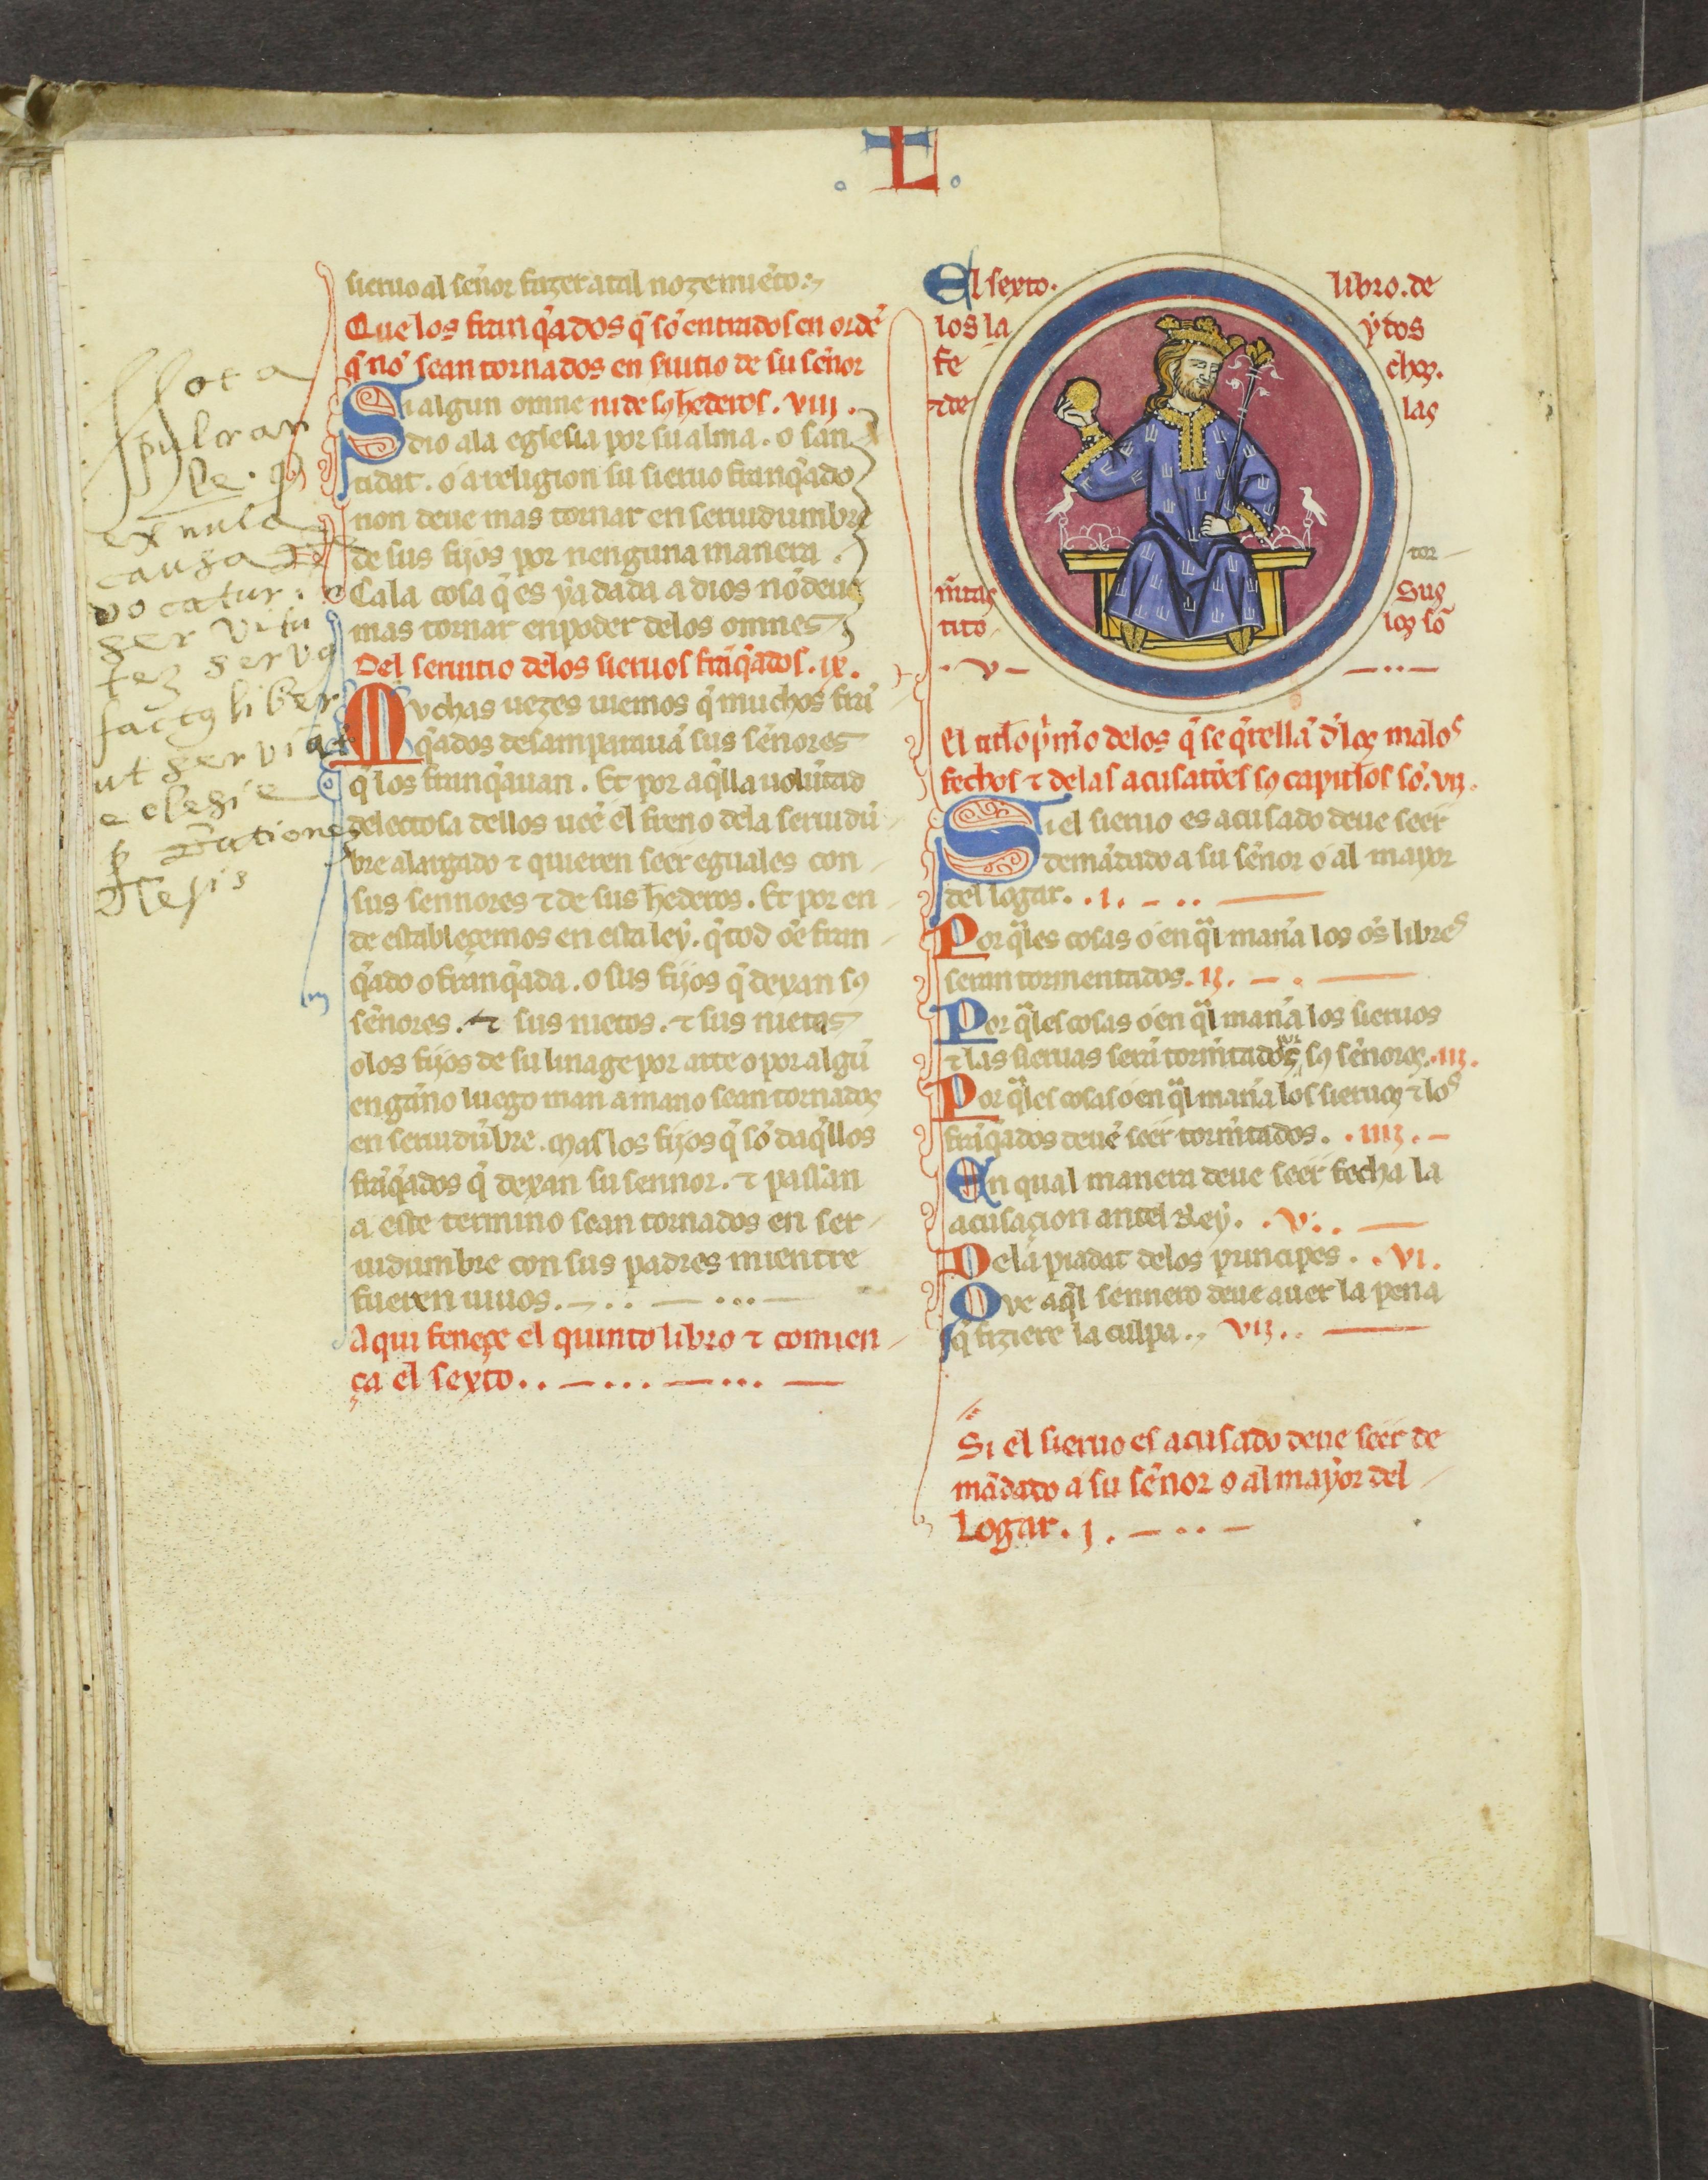 L
sieruo al señor fazer atal nozemiẽto:
Que los fran q̃ados q̃ sõ entrados en ordẽ
q̃ nõ sean tornados en s̃uicio de su señor
Si algun omne ni de sꝯ h̃ederos. viij.
dio ala eglesia por su alma. o san
tidat. o a religion su sieruo franq̃ado
non deue mas tornar en seruidumbre
de sus fijos por nenguna manera.
Ca la cosa q̃ es ẏa dada a dios nõ deue
mas tornar en poder delos omnes
Del seruicio delos sieruos frãq̃ados. ix.
Muchas uezes uiemos q̃ muchos frã
q̃ados desamparauã sus señores
q̃ los franq̃auan. Et por aq̃lla uolũtad
delectosa dellos ueẽ el freno dela seruidũ
bre alargado ⁊ quieren seer eguales con
sus sennores ⁊ de sus h̃ederos. Et por en
de estableçemos en esta leẏ. q̃ tod oẽ fran
q̃ado o franq̃ada. o sus fijos q̃ dexan sꝯ
señores. ⁊ sus nietos. ⁊ sus nietas
o los fijos de su linage por arte o por algũ
engãno luego man a mano sean tornados
en seruidũbre. Mas los fijos q̃ sõ daq̃llos
frãq̃ados q̃ dexan su sennor. ⁊ passan
a este termino sean tornados en ser
uidumbre con sus padres mientre
fueren uiuos.
Aqui feneçe el quinto libro ⁊ comien
ça el sexto.
Nota
ex nula
causa
vocatur
servitu
tez
factꝯ liber
ut
eclesie
El sexto. libro. de
los la ẏdos
fe chos.
⁊ de las
tor
m̃tas Sus
tito los sõ
. v
El titl̃o p̃m̃o delos q̃ se q̃rellã d̃los malos
fechos ⁊ delas acusatões sꝯ capitl̃os sõ. vij.
Si el sieruo es acusado deue seer
demãdado a su señor o al mayor
del logar. .i.
Por q̃les cosas o en q̃l mañã los oẽs libres
seran tormentados. ij.
Por q̃les cosas o en q̃l mañã los sieruos
⁊ las sieruas serã torm̃tados por sꝯ señores. .iij.
Por q̃les cosas o en q̃l mañã los sieruos ⁊ los
frãq̃ados deuẽ seer torm̃tados. .iiij.
En qual manera deue seer fecha la
acusaçion antel Reẏ. .v.
Dela piadat delos principes. .vi.
Que aq̃l sennero deue auer la pena
q̃ fiziere la culpa. vij.
Si el sieruo es acusado deue seer de
mãdado a su señor o al mayor del
Logar. j.